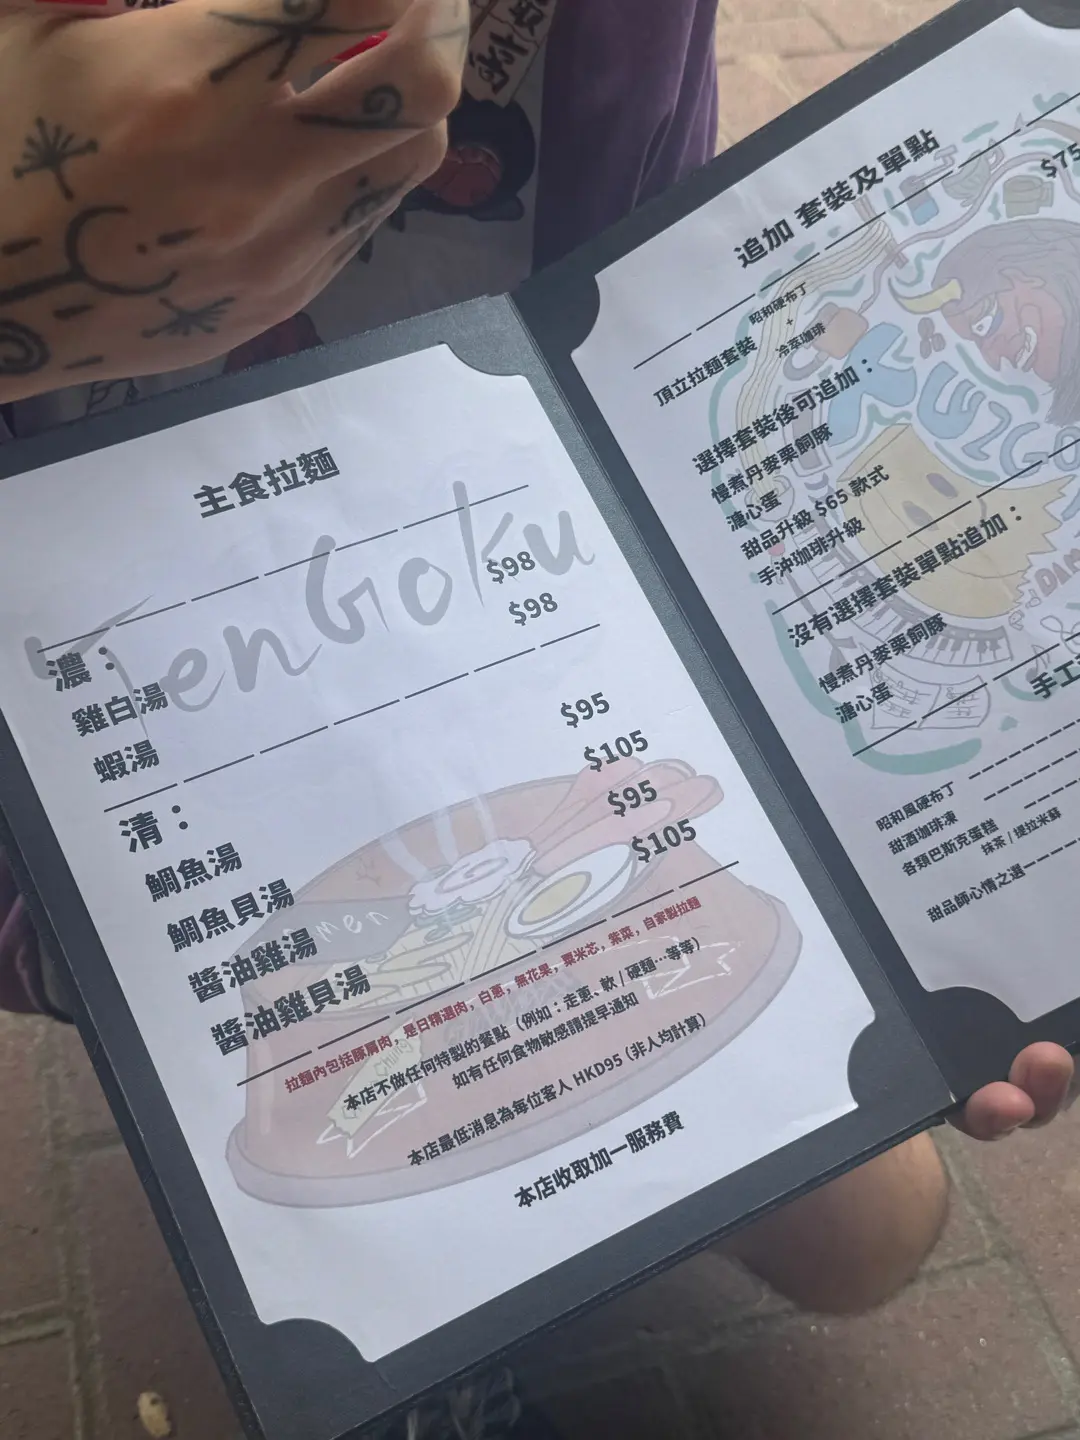 主食拉麵
TenGoku
濃：
雞白湯 $98
蝦湯 $98
清：
鯛魚湯 $95
鯛魚貝湯 $105
醬油雞湯 $95
醬油雞貝湯 $105
拉麵內包括豚肩肉，是日精選肉，白蔥，無花果，粟米芯，紫菜，自家製拉麵
本店不做任何特製的餐點（例如：走蔥、軟 / 硬麵…等等）
如有任何食物敏感請提早通知
本店最低消息為每位客人 HKD95 (非人均計算)
本店收取加一服務費
追加 套裝及單點
昭和硬布丁
+
冷萃咖琲
頂立拉麵套裝 $75
選擇套裝後可追加：
慢煮丹麥栗飼豚
溏心蛋
甜品升級 $65 款式
手沖珈琲升級
沒有選擇套裝單點追加：
慢煮丹麥栗飼豚
溏心蛋
手工
昭和風硬布丁
甜酒咖琲凍
各類巴斯克蛋糕
抹茶 / 提拉米蘇
甜品師心情之選